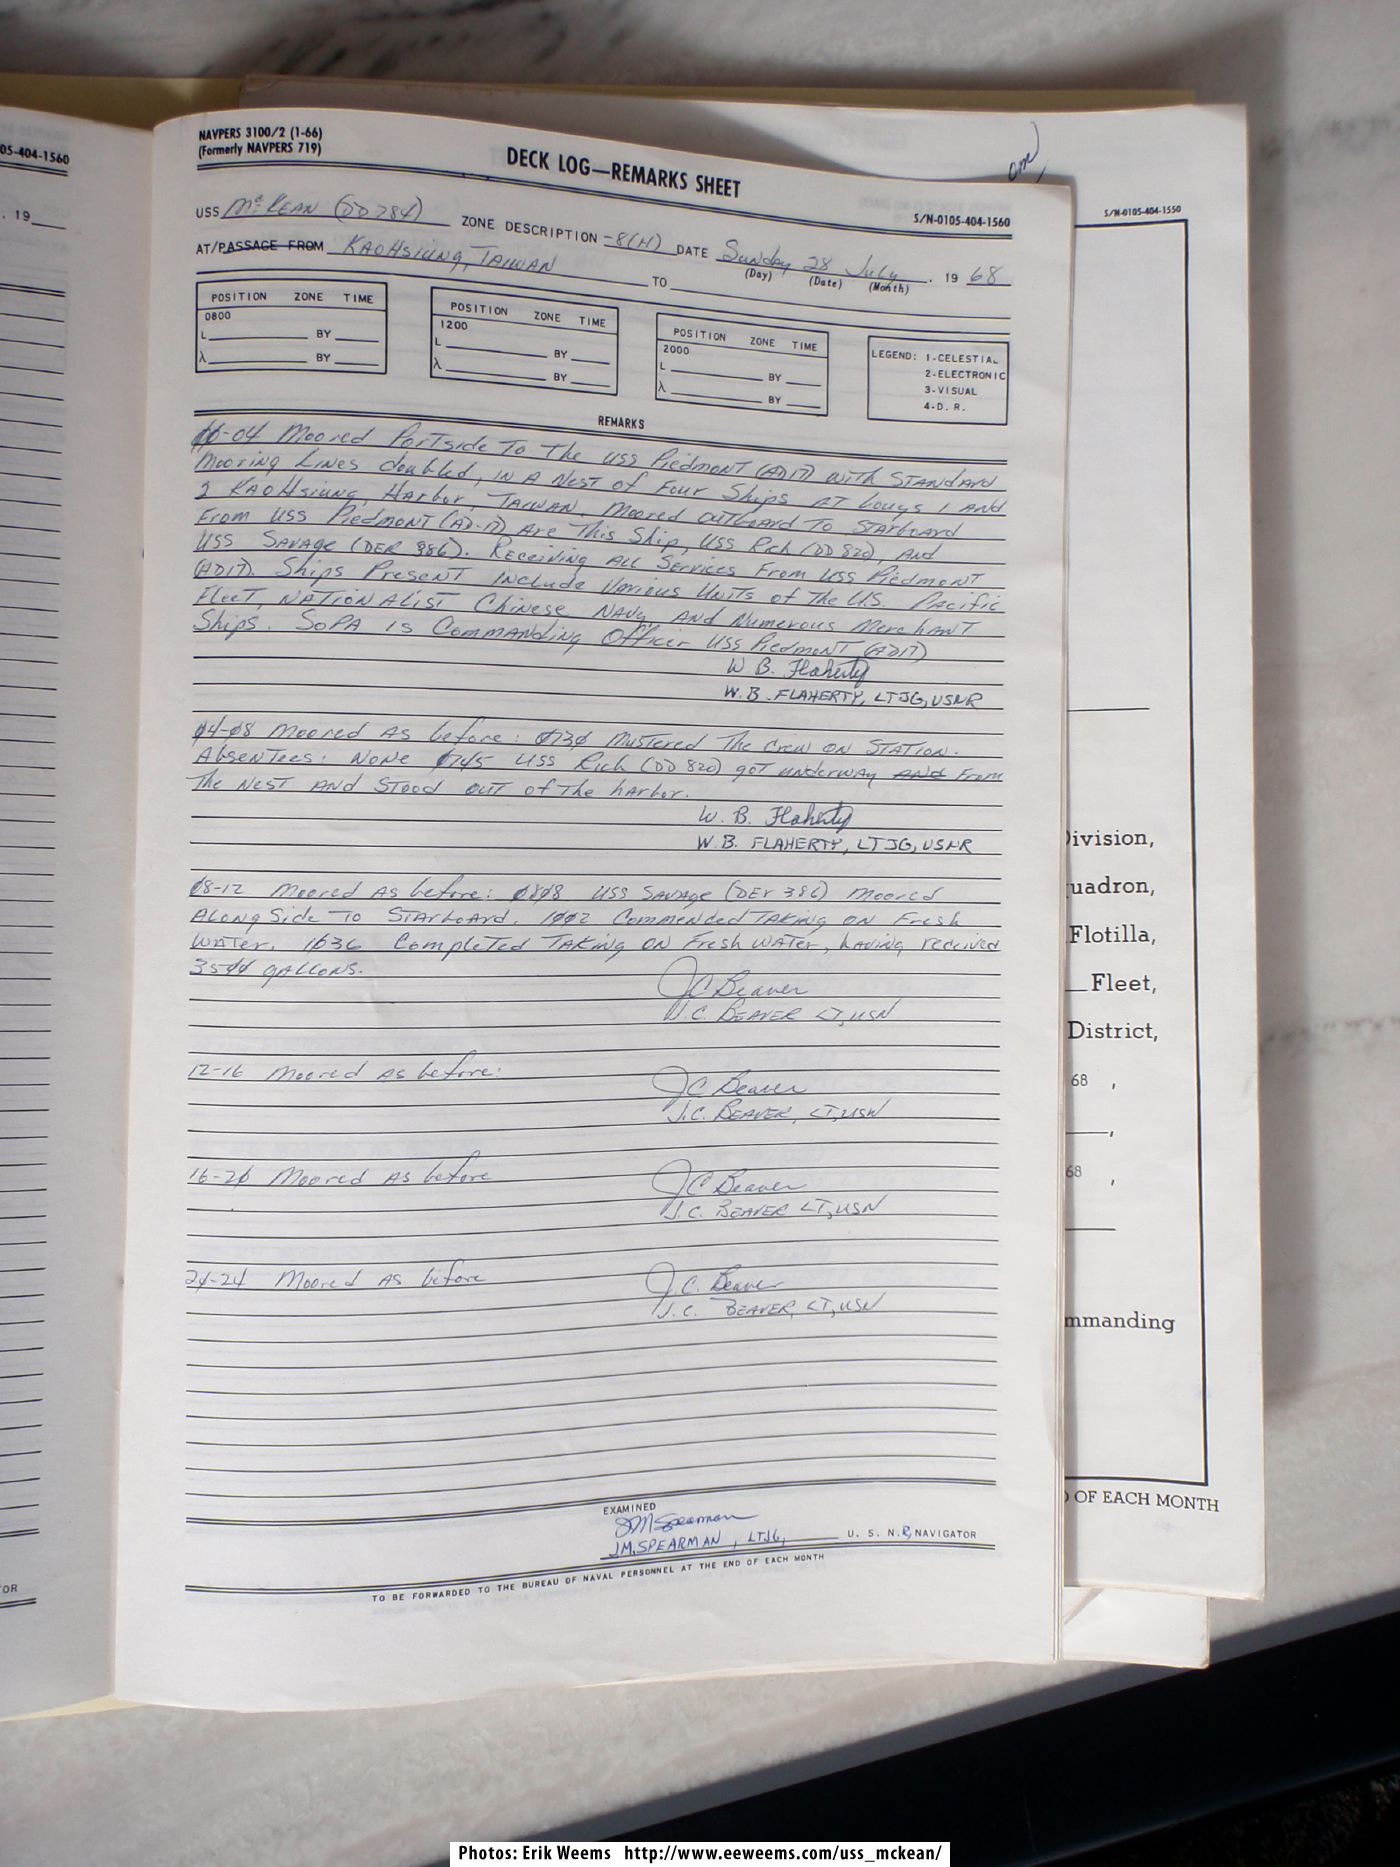 05-404-1560
. 19
NAVPERS 3100/2 (1-66)
(Formerly NAVPERS 719)
DECK LOG—REMARKS SHEET
S/N-0105-404-1560
S/N-0105-404-1550
USS McKEAN (DD784) ZONE DESCRIPTION -8(H) DATE Sunday 28 July . 19 68
(Day) (Date) (Month)
AT/PASSAGE FROM KAOHSIUNG, TAIWAN TO
POSITION ZONE TIME
0800
L BY
λ BY
POSITION ZONE TIME
1200
L BY
λ BY
POSITION ZONE TIME
2000
L BY
λ BY
LEGEND: 1-CELESTIAL
2-ELECTRONIC
3-VISUAL
4-D. R.
REMARKS
00-04 Moored Portside To The USS Piedmont (AD17) with STANDARD
Mooring Lines doubled, in A Nest of Four Ships AT buoys 1 And
2 KAOHsiung, Harbor, TAIWAN. Moored outboard To Starboard
From USS Piedmont (AD-17) Are This Ship, USS Rich (DD 820), And
USS SAVAGE (DER 386). Receiving All Services From USS Piedmont
(AD17). Ships Present include Various Units of The U.S. Pacific
Fleet, NATIONALIST Chinese NAVY, And Numerous Merchant
Ships. SOPA is Commanding Officer USS Piedmont (AD17)
W B. Flaherty
W. B. FLAHERTY, LTJG, USNR
04-08 Moored As before: 0730 Mustered The Crew on Station.
Absentees: None 0745 USS Rich (DD 820) got underway and From
The Nest and Stood out of the harbor.
W. B. Flaherty
W. B. FLAHERTY, LTJG, USNR
08-12 Moored As before: 0808 USS SAVAGE (DER 386) Moored
Along Side To Starboard. 1002 Commended Taking on Fresh
Water. 1036 Completed Taking on Fresh Water, having received
3500 gallons.
JC Beaver
J.C. BEAVER LT, USN
12-16 Moored As before:
JC Beaver
J.C. BEAVER, LT, USN
16-20 Moored As before
JC Beaver
J.C. BEAVER LT, USN
24-24 Moored As before
J.C. Beaver
J.C. BEAVER, LT, USN
EXAMINED
JM Spearman
J.M. SPEARMAN, LTJG, U. S. N. R, NAVIGATOR
TO BE FORWARDED TO THE BUREAU OF NAVAL PERSONNEL AT THE END OF EACH MONTH
ivision,
uadron,
Flotilla,
Fleet,
District,
68 ,
,
68 ,
mmanding
OF EACH MONTH
OR
Photos: Erik Weems http://www.eeweems.com/uss_mckean/